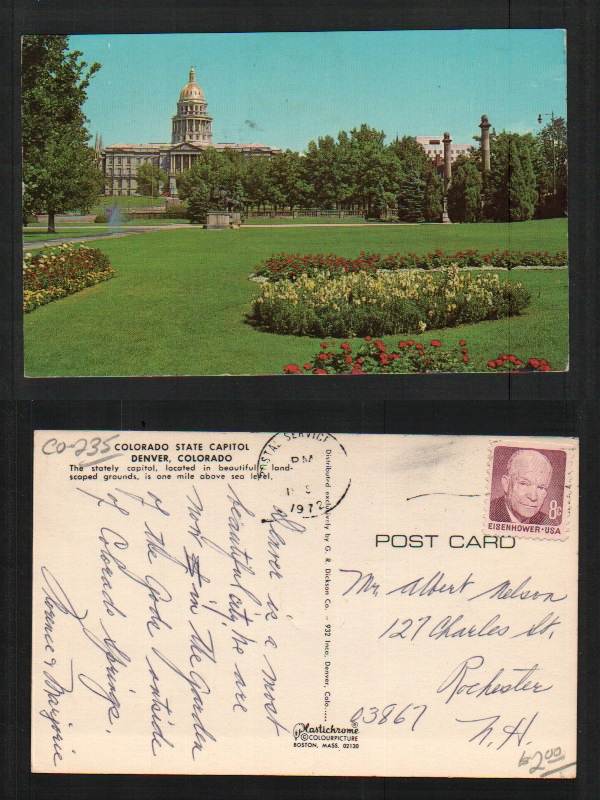 CO-235
COLORADO STATE CAPITOL
DENVER, COLORADO
The stately capitol, located in beautifully land-
scaped grounds, is one mile above sea level.
Denver is a most
beautiful city, we are
now in the Garden
of the Gods outside
of Colorado Springs.
Florence & Marjorie
POSTAL SERVICE
PM
1972
Distributed exclusively by G. R. Dickson Co. - 932 Inca, Denver, Colo.....
Plastichrome®
©COLOURPICTURE
BOSTON, MASS. 02130
8c
EISENHOWER·USA
POST CARD
Mr. Albert Nelson
127 Charles St.
Rochester
03867 N.H.
2.00